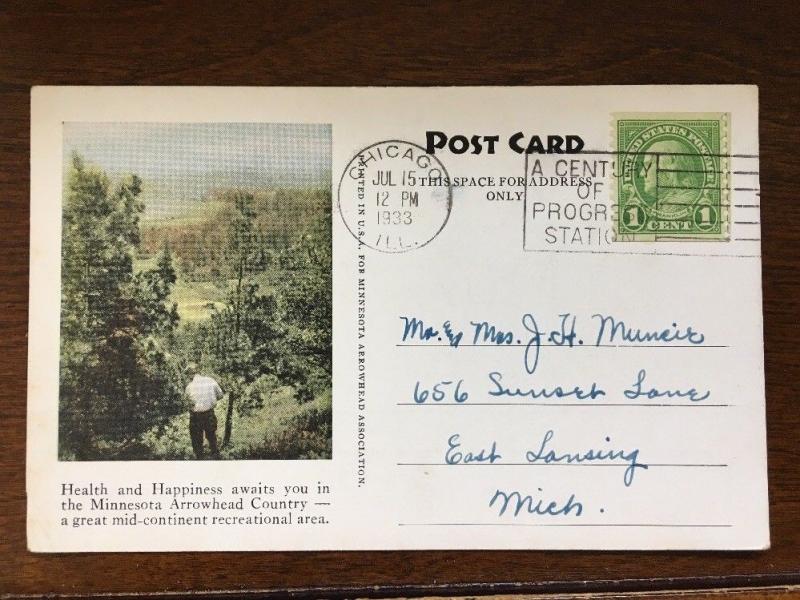 POST CARD
THIS SPACE FOR ADDRESS
ONLY
CHICAGO
JUL 15
12 PM
1933
ILL.
A CENTURY
OF
PROGRESS
STATION
UNITED STATES POSTAGE
1 CENT 1
PRINTED IN U.S.A. FOR MINNESOTA ARROWHEAD ASSOCIATION.
Mr. & Mrs. J. H. Muncie
656 Sunset Lane
East Lansing
Mich.
Health and Happiness awaits you in
the Minnesota Arrowhead Country —
a great mid-continent recreational area.